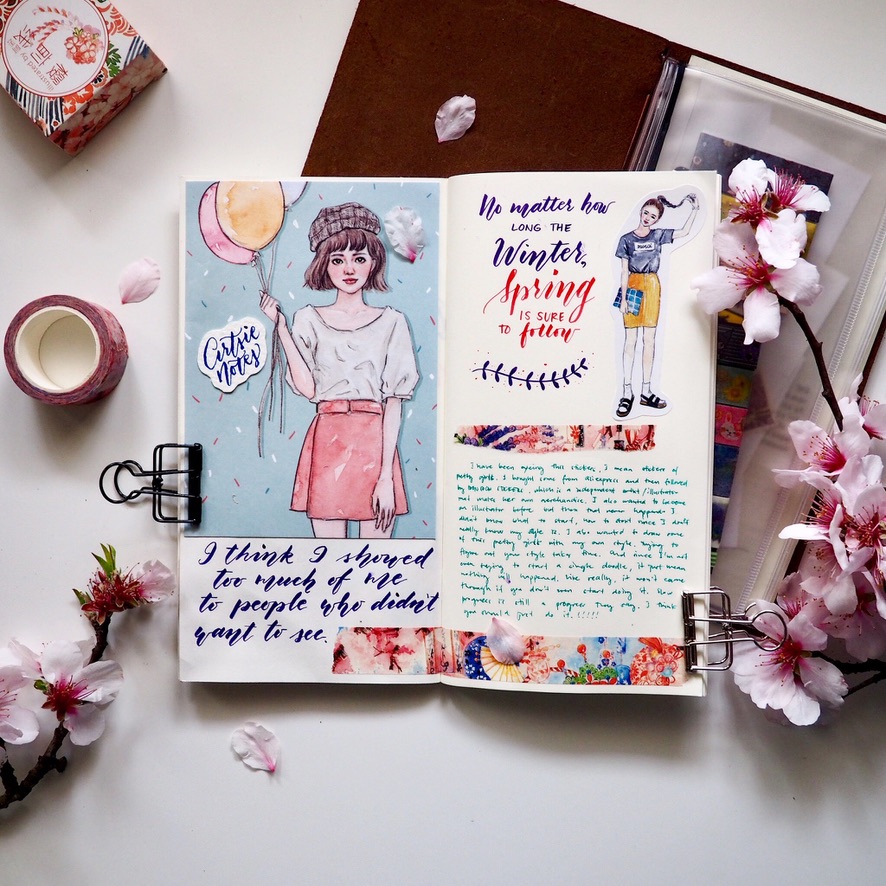 illustrated by
Cirtsie
Notes
I think I showed
too much of me
to people who didn't
want to see.
No matter how
LONG THE
Winter,
Spring
IS SURE
TO follow
I have been seeing this stickers. I mean stickers of
pretty girls. I bought some from Aliexpress and then followed
by which is a independent artist/illustrator
that makes her own merchandise. I also wanted to become
an illustrator before but then that never happened. I
didn't know what to start, how to start since I don't
really know my style is. I also wanted to draw some
of this pretty girls with my own style, trying to
figure out your style takes time. And since I'm not
even trying to start a single doodle, it just mean
nothing happened. Like really, it won't come
through if you don't even start doing it. Slow
progress is still a progress they say. I think
you should just do it!!!!!